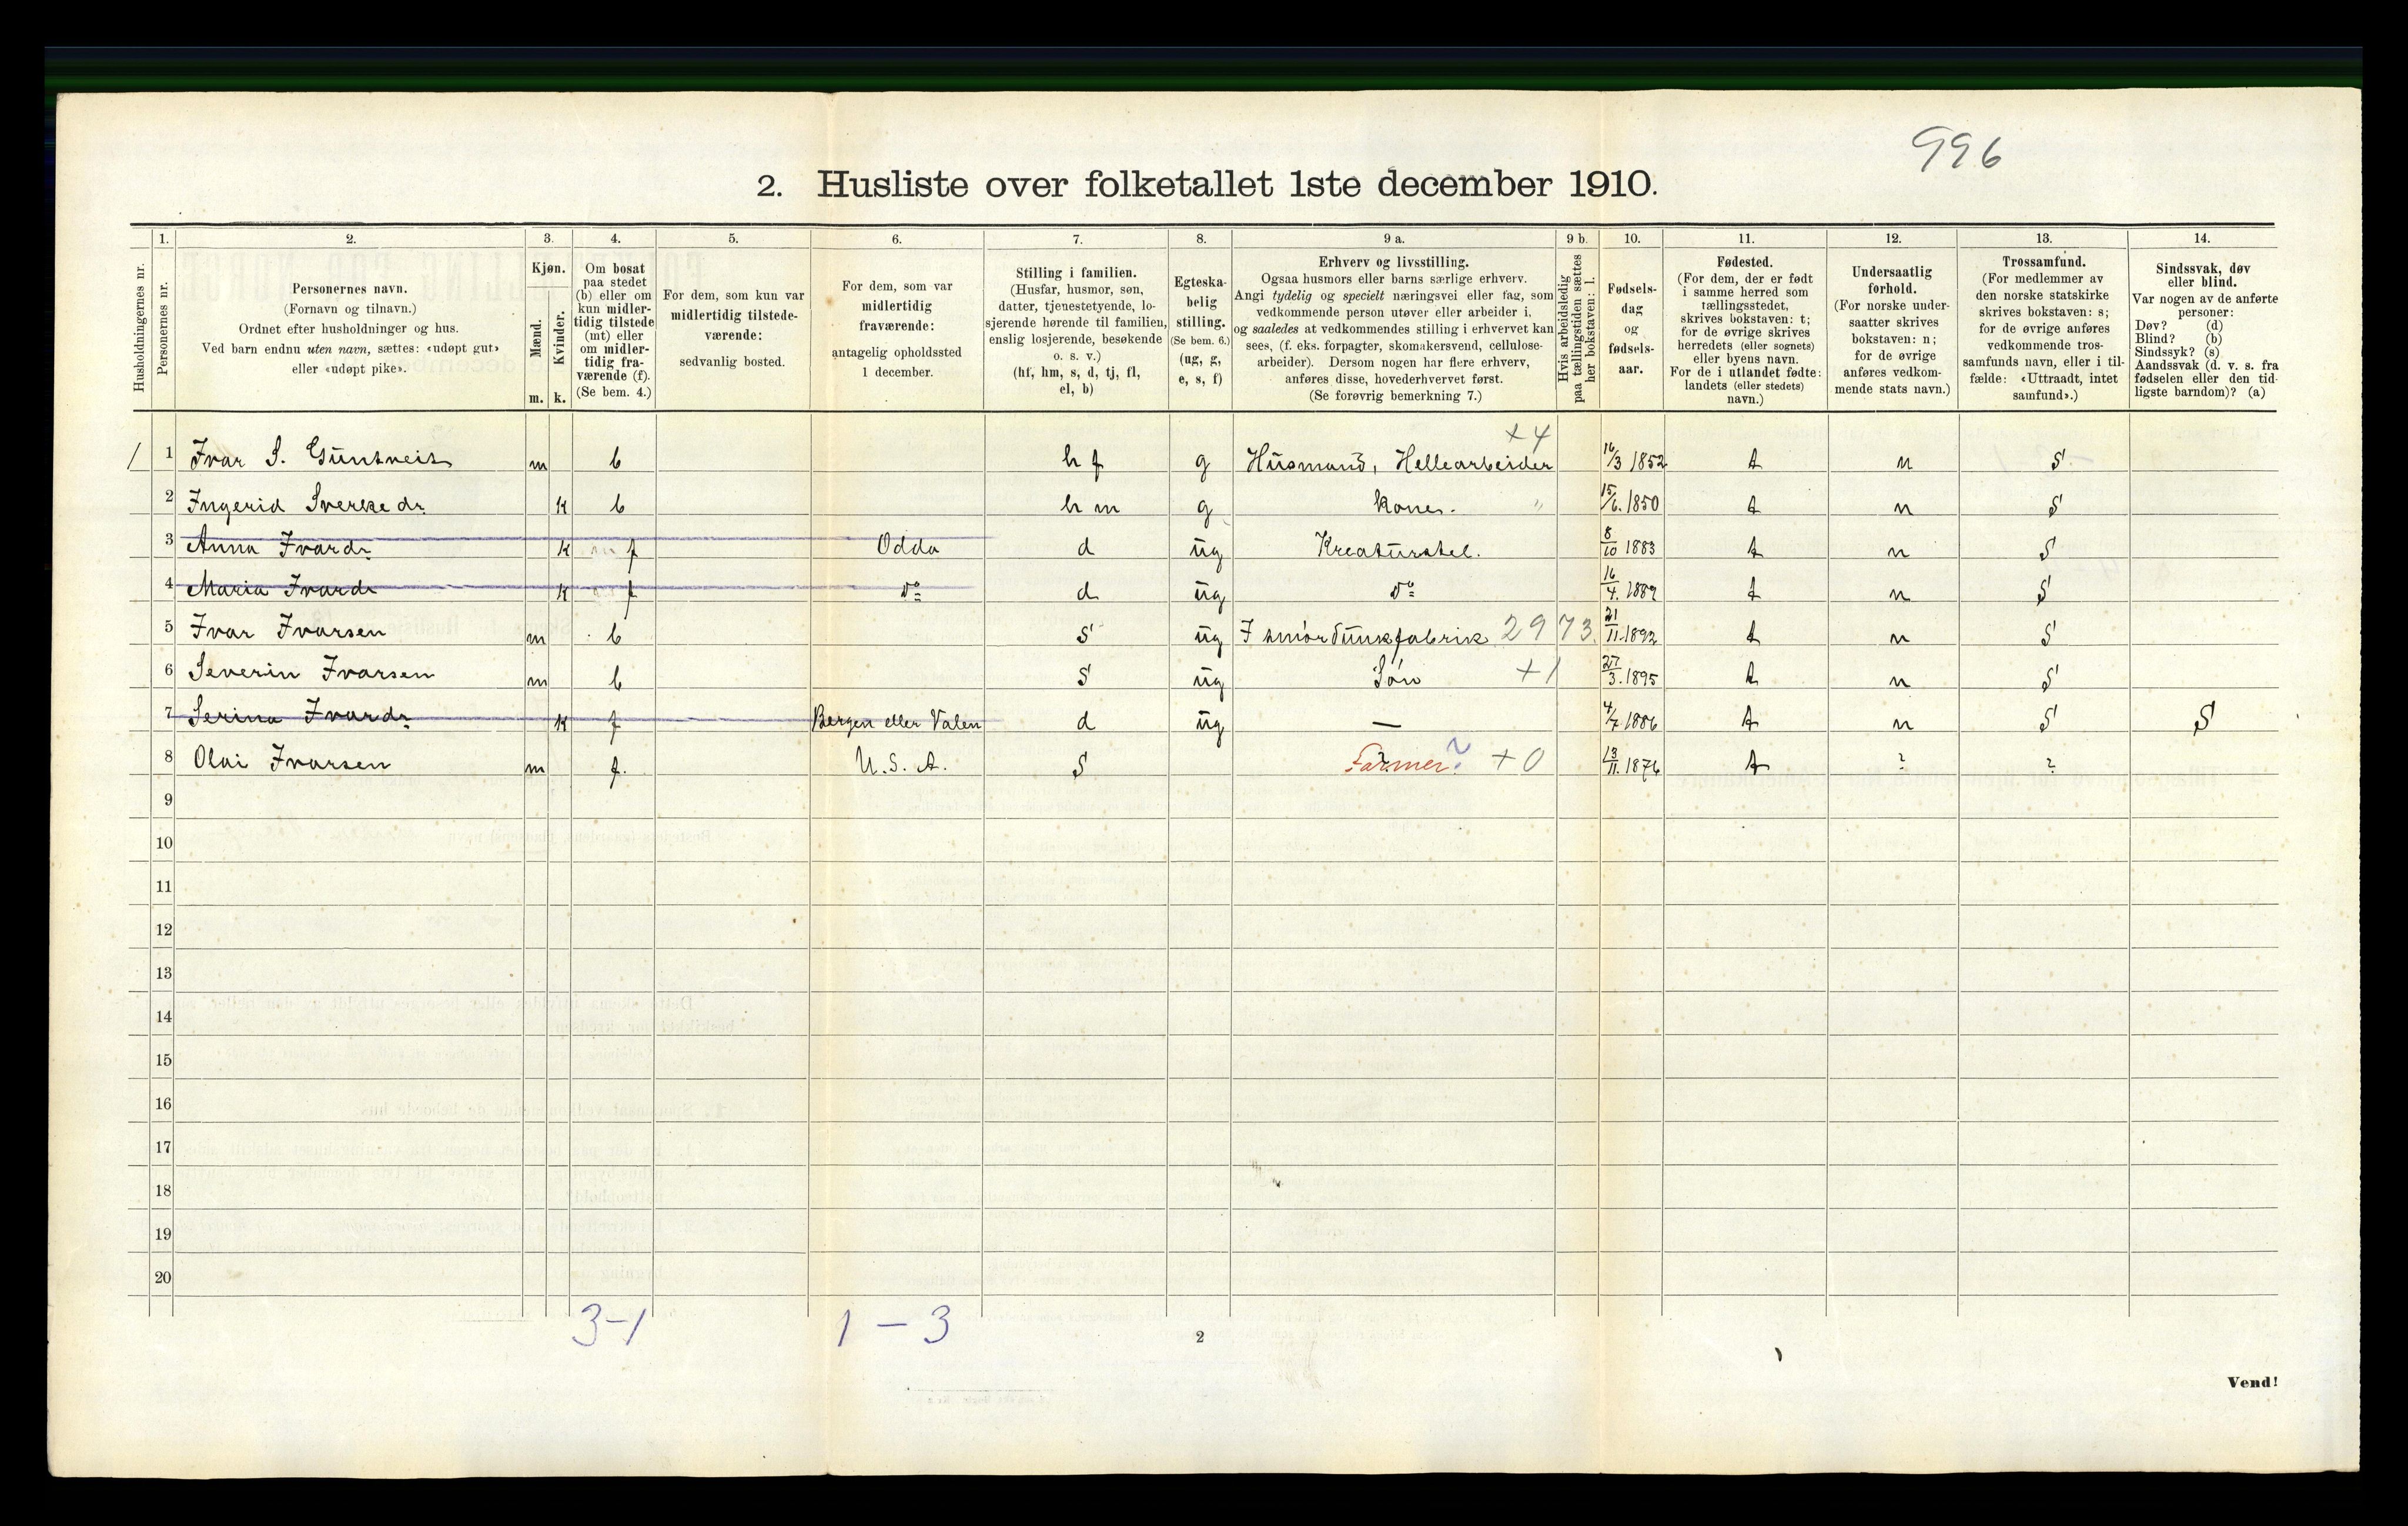 996
2. Husliste over folketallet 1ste december 1910.
Husholdningernes nr.
1.
Personernes nr.
2.
Personernes navn.
(Fornavn og tilnavn.)
Ordnet efter husholdninger og hus.
Ved barn endnu uten navn, sættes: «udøpt gut»
eller «udøpt pike».
3.
Kjøn.
Mænd.
Kvinder.
m. k.
4.
Om bosat
paa stedet
(b) eller om
kun midler-
tidig tilstede
(mt) eller
om midler-
tidig fra-
værende (f).
(Se bem. 4.)
5.
For dem, som kun var
midlertidig tilstede-
værende:
sedvanlig bosted.
6.
For dem, som var
midlertidig
fraværende:
antagelig opholdssted
1 december.
7.
Stilling i familien.
(Husfar, husmor, søn,
datter, tjenestetyende, lo-
sjerende hørende til familien,
enslig losjerende, besøkende
o. s. v.)
(hf, hm, s, d, tj, fl,
el, b)
8.
Egteska-
belig
stilling.
(Se bem. 6.)
(ug, g,
e, s, f)
9 a.
Erhverv og livsstilling.
Ogsaa husmors eller barns særlige erhverv.
Angi tydelig og specielt næringsvei eller fag, som
vedkommende person utøver eller arbeider i,
og saaledes at vedkommendes stilling i erhvervet kan
sees, (f. eks. forpagter, skomakersvend, cellulose-
arbeider). Dersom nogen har flere erhverv,
anføres disse, hovederhvervet først.
(Se forøvrig bemerkning 7.)
9 b.
Hvis arbeidsledig
paa tællingstiden sættes
her bokstaven: l.
10.
Fødsels-
dag
og
fødsels-
aar.
11.
Fødested.
(For dem, der er født
i samme herred som
tællingsstedet,
skrives bokstaven: t;
for de øvrige skrives
herredets (eller sognets)
eller byens navn.
For de i utlandet fødte:
landets (eller stedets)
navn.)
12.
Undersaatlig
forhold.
(For norske under-
saatter skrives
bokstaven: n;
for de øvrige
anføres vedkom-
mende stats navn.)
13.
Trossamfund.
(For medlemmer av
den norske statskirke
skrives bokstaven: s;
for de øvrige anføres
vedkommende tros-
samfunds navn, eller i til-
fælde: «Uttraadt, intet
samfund».)
14.
Sindssvak, døv
eller blind.
Var nogen av de anførte
personer:
Døv? (d)
Blind? (b)
Sindssyk? (s)
Aandssvak (d. v. s. fra
fødselen eller den tid-
ligste barndom)? (a)
1 1 Ivar S. Guntveit m b h f g Husmand, Hellearbeider +4 16/3 1852 t n S
2 Ingerid Sverkedr. k b h m g Kone. " 15/6. 1850 t n S
3 Anna Ivardr k f Odda d ug Kreaturstel. 8/10 1883 t n S
4 Maria Ivardr k f do d ug do 16/4. 1889 t n S
5 Ivar Ivarsen m b S ug I smørtunkfabrik 2973. 21/11. 1892 t n S
6 Severin Ivarsen m b S ug Søn +1 27/3. 1895 t n S
7 Serina Ivardr k f Bergen eller Valen d ug — 4/7 1886 t n S S
8 Olai Ivarsen m f. U. S. A. S Farmer? +0 13/11. 1876 t ? ?
9
10
11
12
13
14
15
16
17
18
19
20
3-1 1-3
2
Vend!